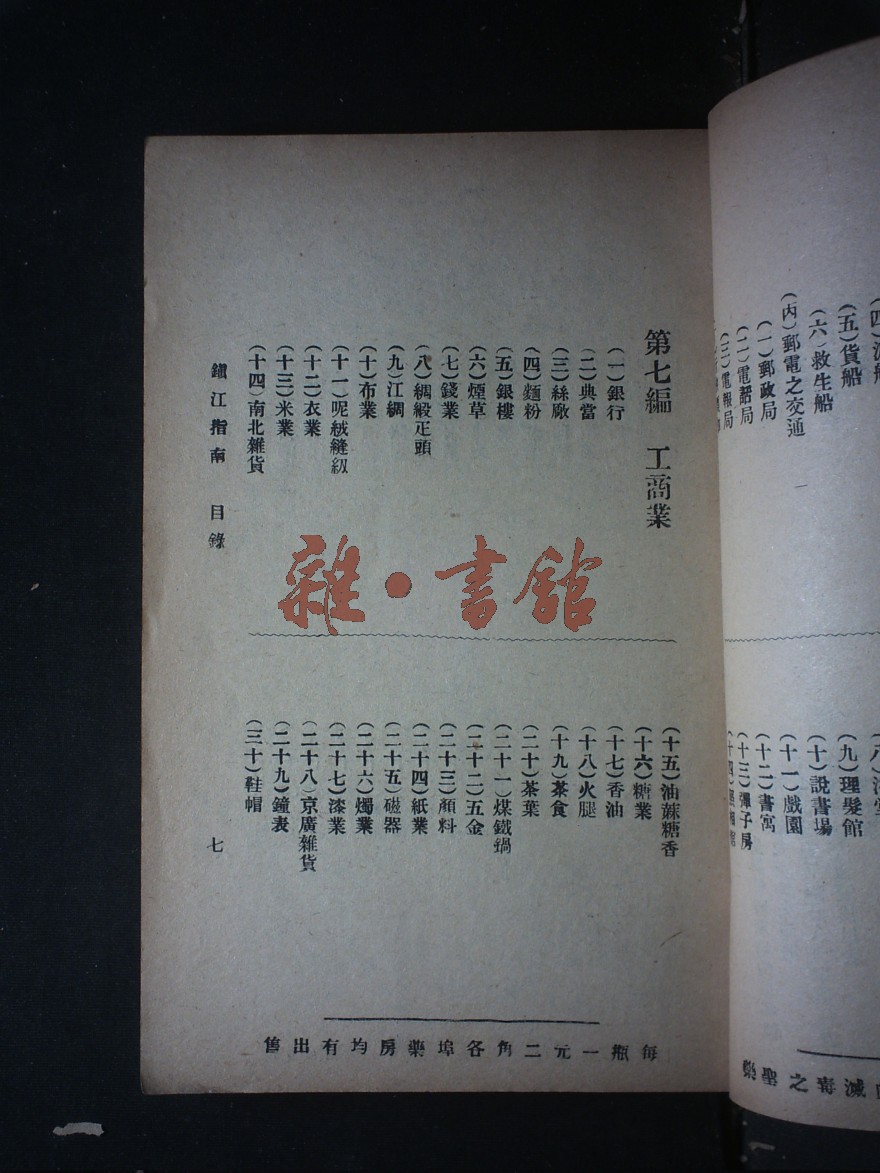 (四)
(五)貨船
(六)救生船
(丙)郵電之交通
(一)郵政局
(二)電話局
(三)電報局
(九)理髮館
(十)說書場
(十一)戲園
(十二)書寓
(十三)彈子房
滅毒之聖藥
第七編 工商業
(一)銀行
(二)典當
(三)絲廠
(四)麵粉
(五)銀樓
(六)煙草
(七)錢業
(八)綢緞疋頭
(九)江綢
(十)布業
(十一)呢絨縫紉
(十二)衣業
(十三)米業
(十四)南北雜貨
(十五)油蔴糖香
(十六)糖業
(十七)香油
(十八)火腿
(十九)茶食
(二十)茶葉
(二十一)煤鐵鍋
(二十二)五金
(二十三)顏料
(二十四)紙業
(二十五)磁器
(二十六)燭業
(二十七)漆業
(二十八)京廣雜貨
(二十九)鐘表
(三十)鞋帽
鎭江指南 目錄 七
每瓶一元二角各埠藥房均有出售
雜·書館